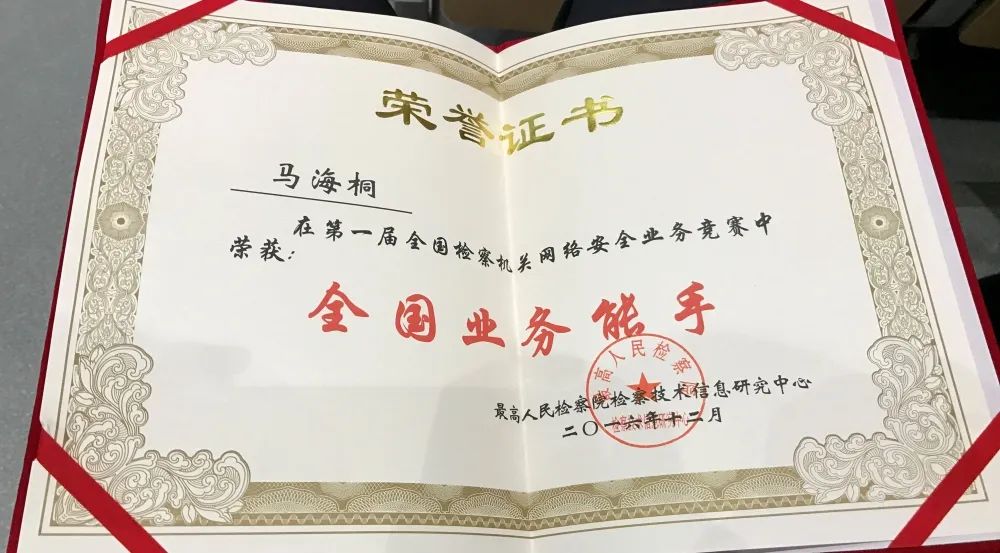 荣誉证书
马海桐
在第一届全国检察机关网络安全业务竞赛中
荣获：
全国业务能手
最高人民检察院检察技术信息研究中心
二〇一六年十二月
最高人民检察院
检察技术信息研究中心